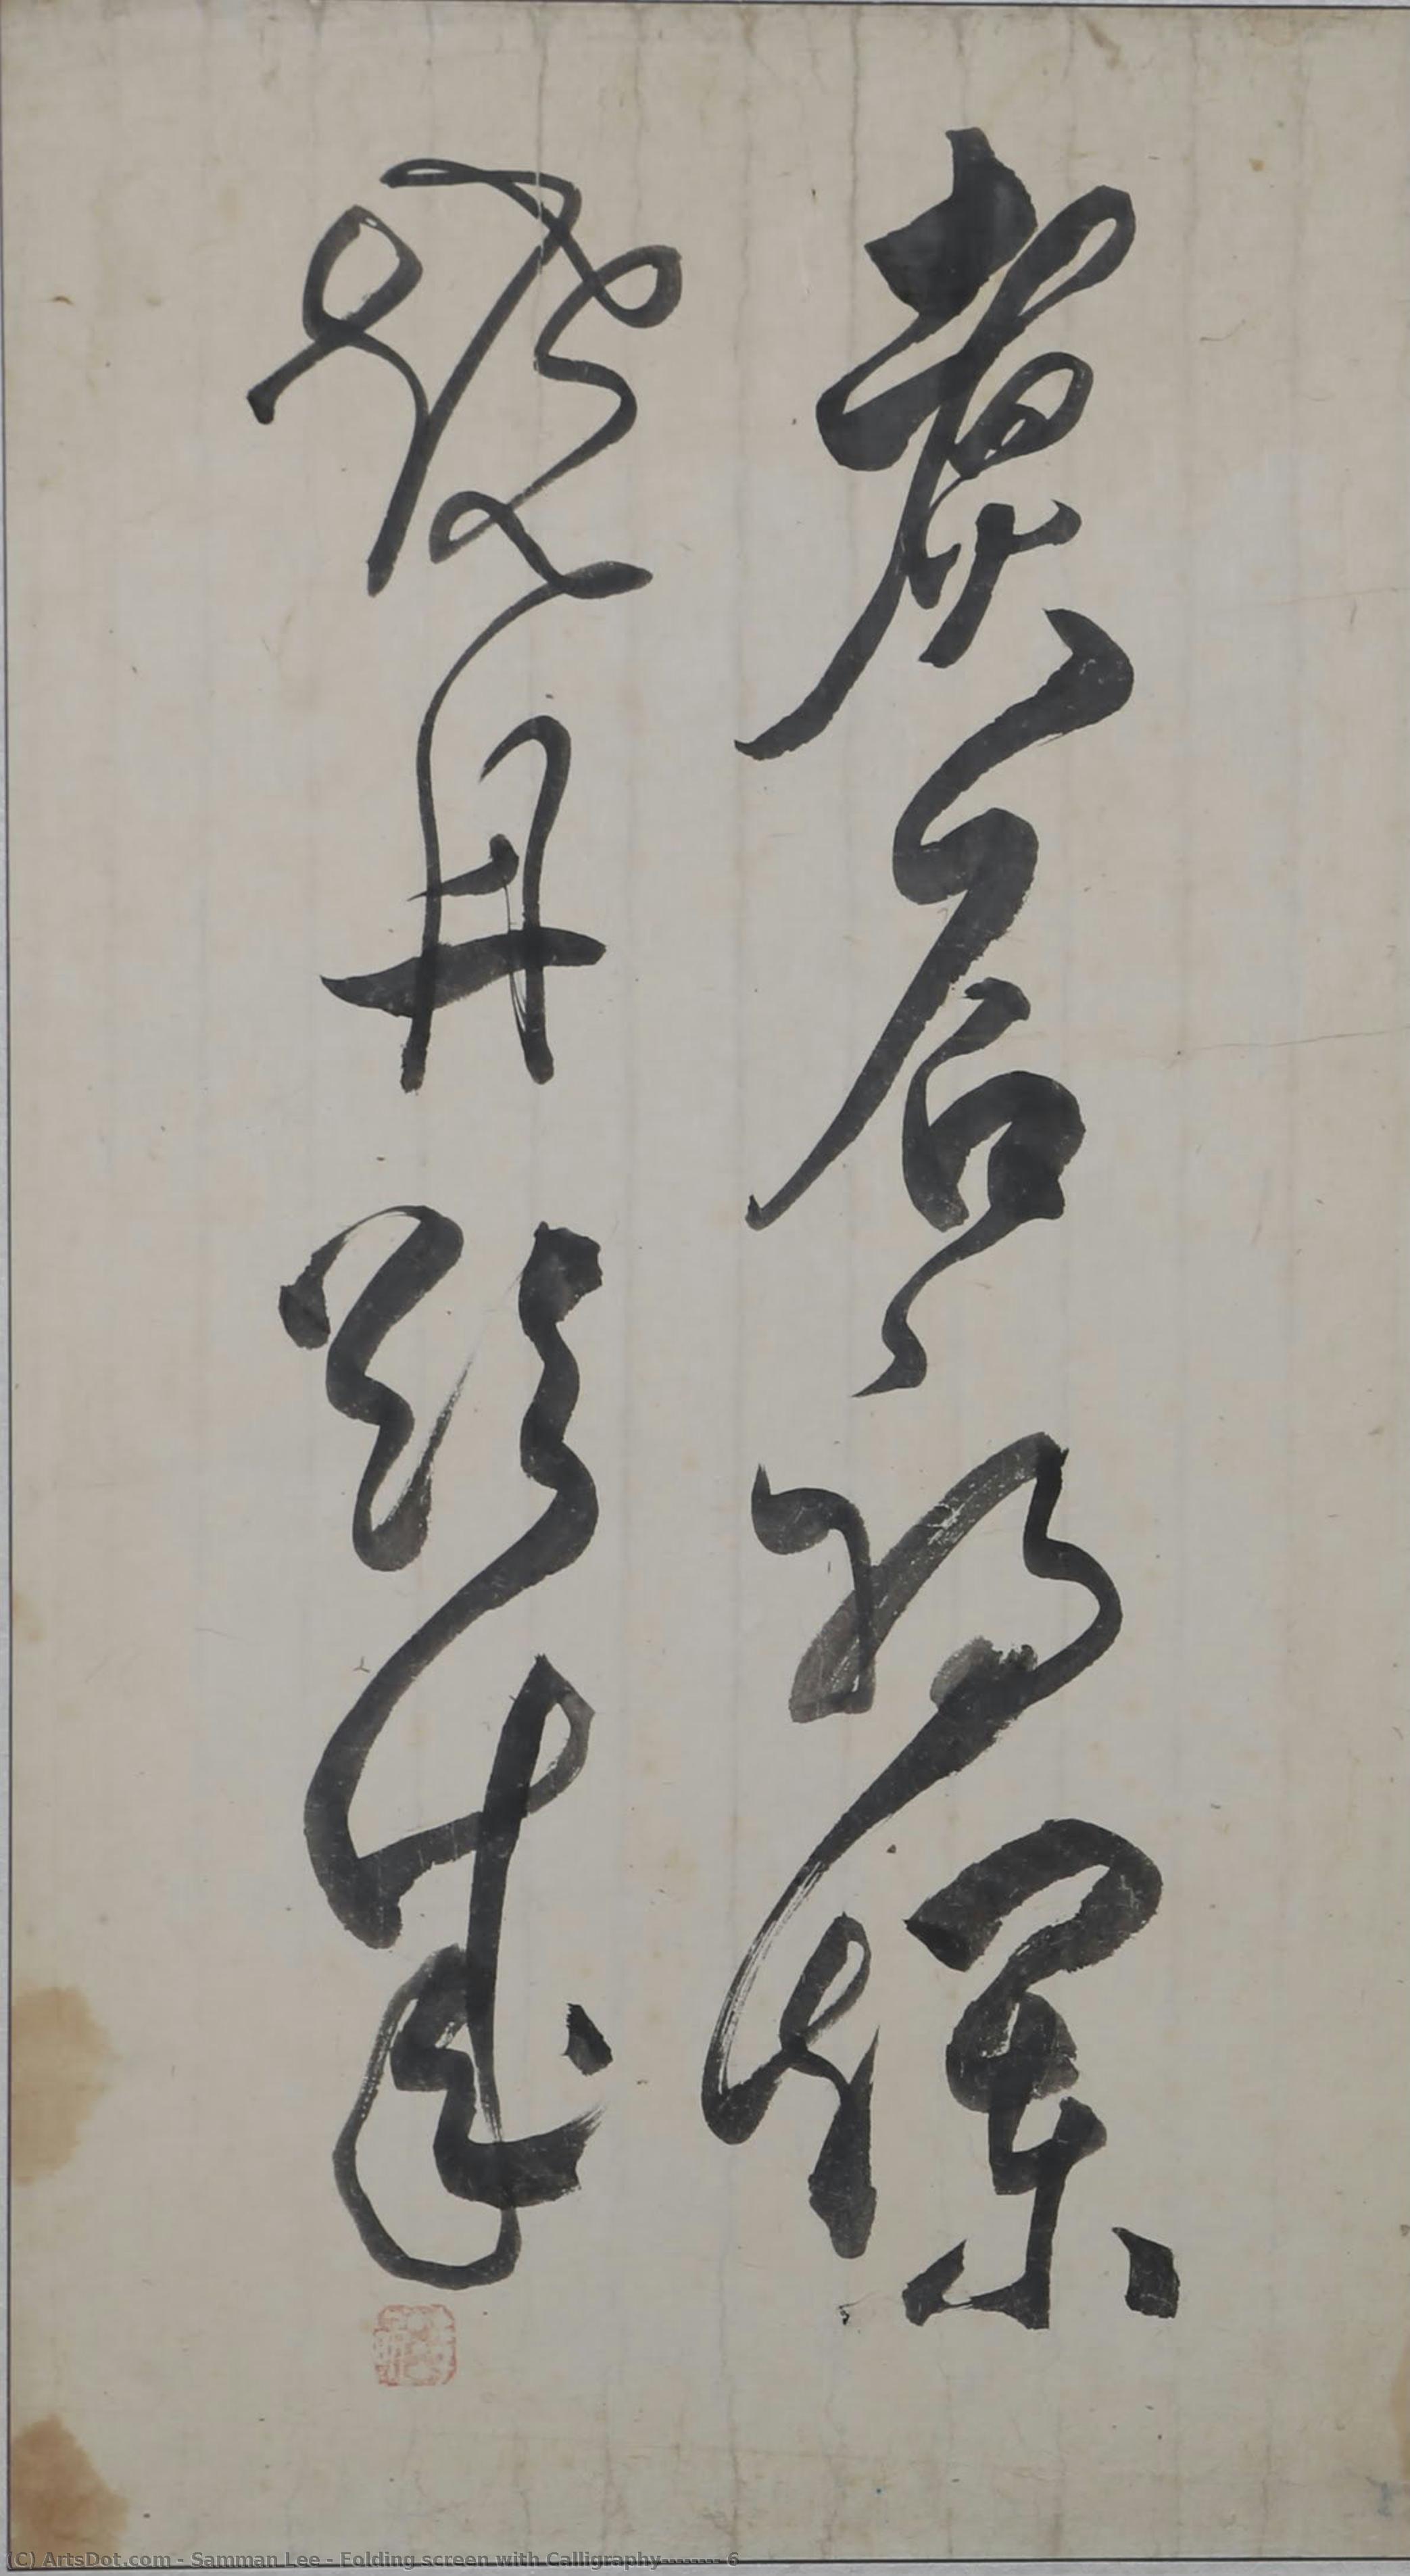 煮石將爛
燒丹欲成
(C) ArtsDot.com - Samman Lee - Folding screen with Calligraphy--------6